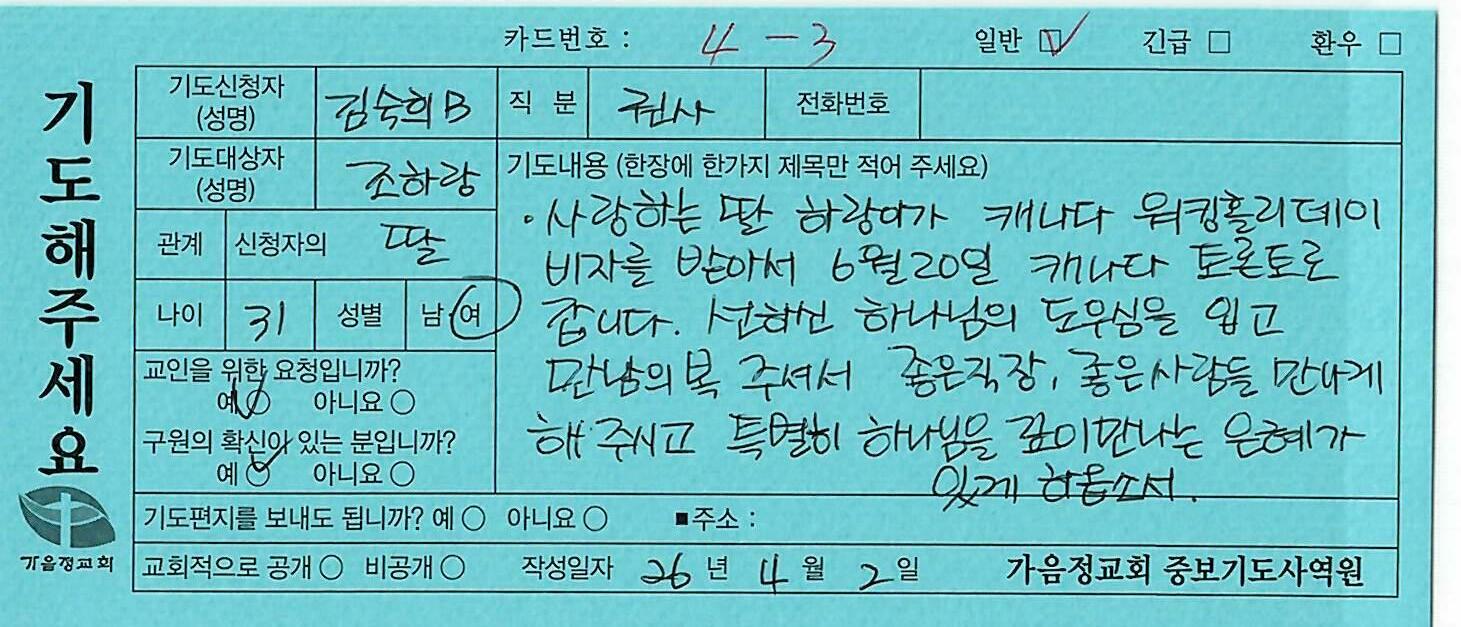 카드번호 : 4 - 3 일반 ☑ 긴급 □ 환우 □
기도해주세요
기도신청자 (성명) 김숙희B 직 분 권사 전화번호
기도대상자 (성명) 조하랑
관계 신청자의 딸
나이 31 성별 남 여
교인을 위한 요청입니까?
예 ○ 아니요 ○
구원의 확신이 있는 분입니까?
예 ○ 아니요 ○
기도내용 (한장에 한가지 제목만 적어 주세요)
· 사랑하는 딸 하랑이가 캐나다 워킹홀리데이
비자를 받아서 6월20일 캐나다 토론토로
갑니다. 선하신 하나님의 도우심을 입고
만남의 복 주셔서 좋은직장, 좋은사람들 만나게
해 주시고 특별히 하나님을 깊이만나는 은혜가
있게 하옵소서.
기도편지를 보내도 됩니까? 예 ○ 아니요 ○ ■주소 :
교회적으로 공개 ○ 비공개 ○ 작성일자 26 년 4 월 2 일 가음정교회 중보기도사역원
가음정교회